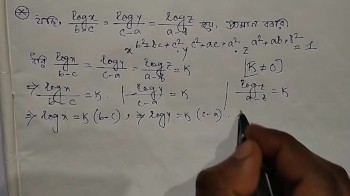 * যদি, log x / b-c = log y / c-a = log z / a-b হয়, প্রমাণ কর:
x^b²+bc+c² . y^c²+ca+a² . z^a²+ab+b² = 1
ধরি log x / b-c = log y / c-a = log z / a-b = K [K ≠ 0]
⇒ log x / b-c = K | log y / c-a = K | log z / a-b = K
⇒ log x = K (b-c), ⇒ log y = K (c-a).